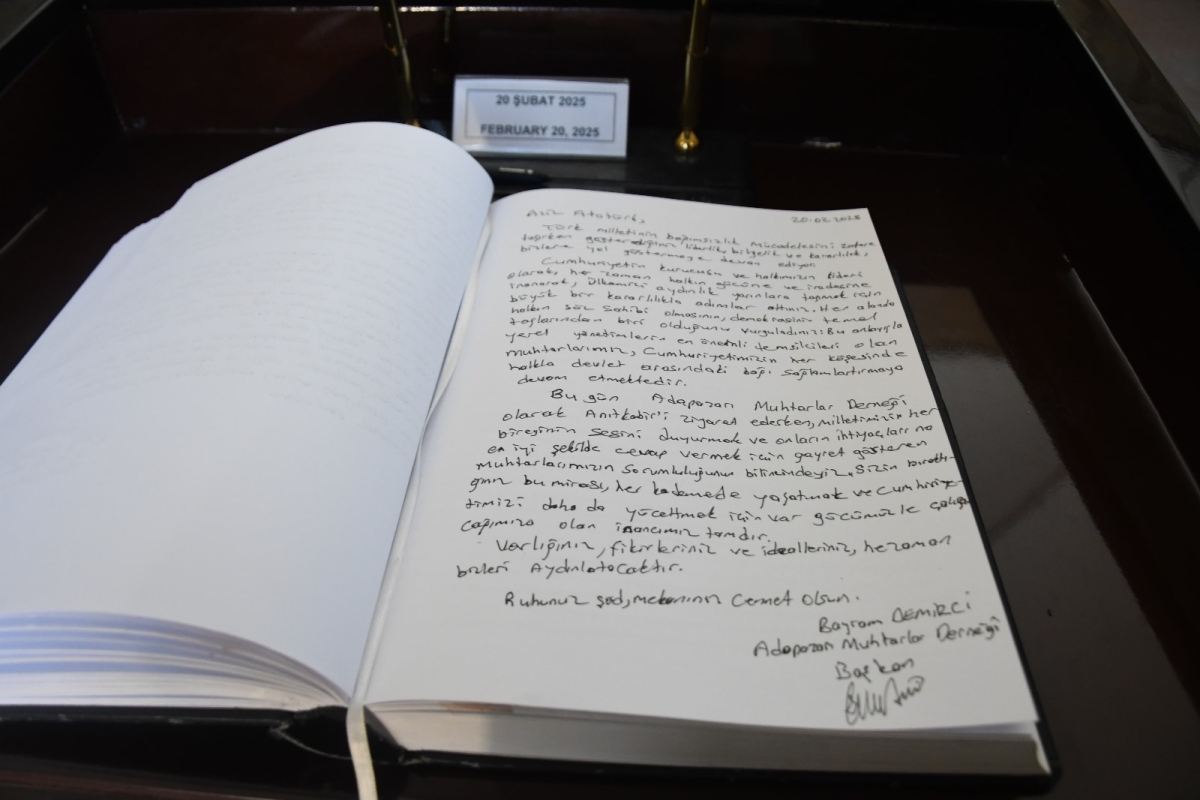 20 ŞUBAT 2025
FEBRUARY 20, 2025
Aziz Atatürk,
20.02.2025
Türk milletinin bağımsızlık mücadelesini zafere
taşırken gösterdiğiniz liderlik, bilgelik ve kararlılık,
bizlere yol göstermeye devam ediyor.
Cumhuriyetin kurucusu ve halkımızın lideri
olarak, her zaman halkın gücüne ve iradesine
inanarak, ülkemizi aydınlık yarınlara taşımak için
büyük bir kararlılıkla adımlar attınız. Her alanda
halkın söz sahibi olmasının, demokrasinin temel
taşlarından biri olduğunu vurguladınız. Bu anlayışla
yerel yönetimlerin en önemli temsilcileri olan
muhtarlarımız, Cumhuriyetimizin her köşesinde
halkla devlet arasındaki bağı sağlamlaştırmaya
devam etmektedir.
Bu gün Adapazarı Muhtarlar Derneği
olarak Anıtkabir'i ziyaret ederken, milletimizin her
bireyinin sesini duyurmak ve onların ihtiyaçlarına
en iyi şekilde cevap vermek için gayret gösteren
muhtarlarımızın sorumluluğunun bilincindeyiz. Sizin bıraktı-
ğınız bu mirası, her kademede yaşatmak ve Cumhuriye-
timizi daha da yüceltmek için var gücümüzle çalışa-
cağımıza olan inancımız tamdır.
Varlığınız, fikirleriniz ve idealleriniz, her zaman
bizleri Aydınlatacaktır.
Ruhunuz şad, mekanınız Cennet Olsun.
Bayram DEMİRCİ
Adapazarı Muhtarlar Derneği
Başkan